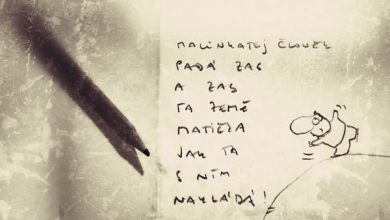 MALINKATEJ ČLOVEK
PADÁ ZAS
A ZAS
TA ZEMĚ
MATIČKA
JAK TA
S NÍM
NAKLÁDÁ!